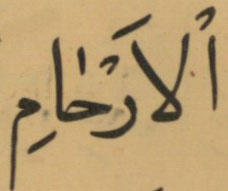 اْلاَرْحَامِ